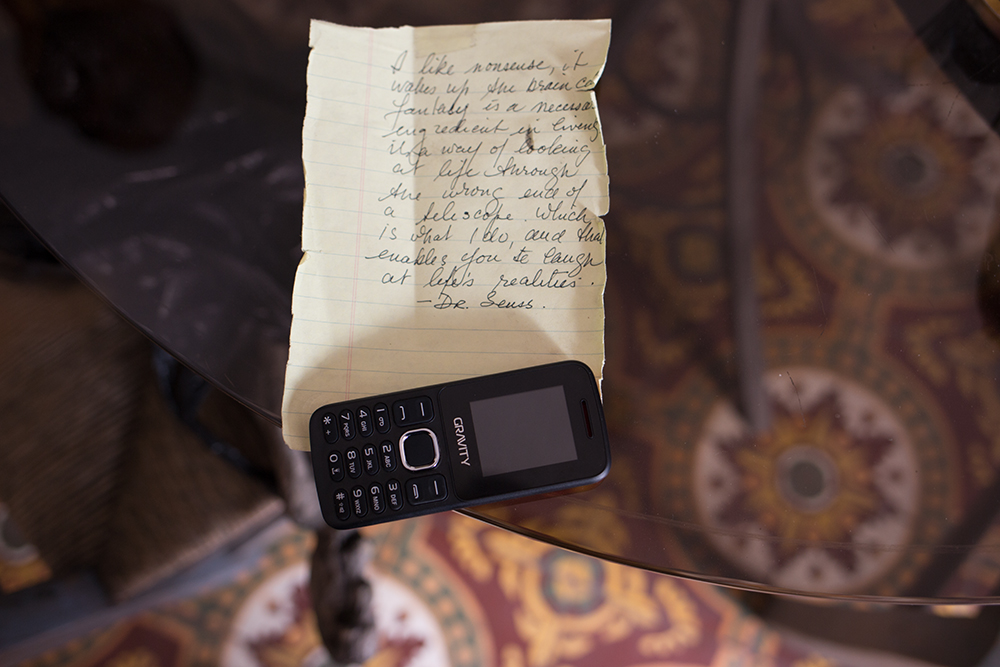 I like nonsense, it
wakes up the brain ce
Fantasy is a necessa
ingredient in living
it's a way of looking
at life through
the wrong end of
a teloscope. Which
is what I do, and that
enables you to laugh
at life's realities.
- Dr. Seuss.
GRAVITY
1
2 ABC
3 DEF
4 GHI
5 JKL
6 MNO
7 PQRS
8 TUV
9 WXYZ
* +
0
#